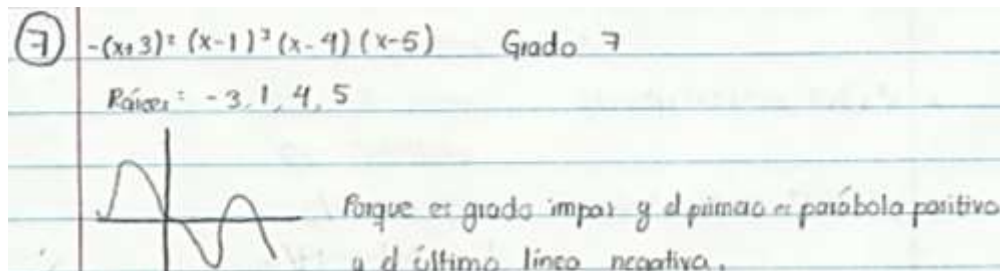 7 -(x+3)² (x-1)³ (x-4) (x-5) Grado 7
Raíces: -3, 1, 4, 5
Porque es grado impar y el primero es parábola positiva
y el último línea negativa.